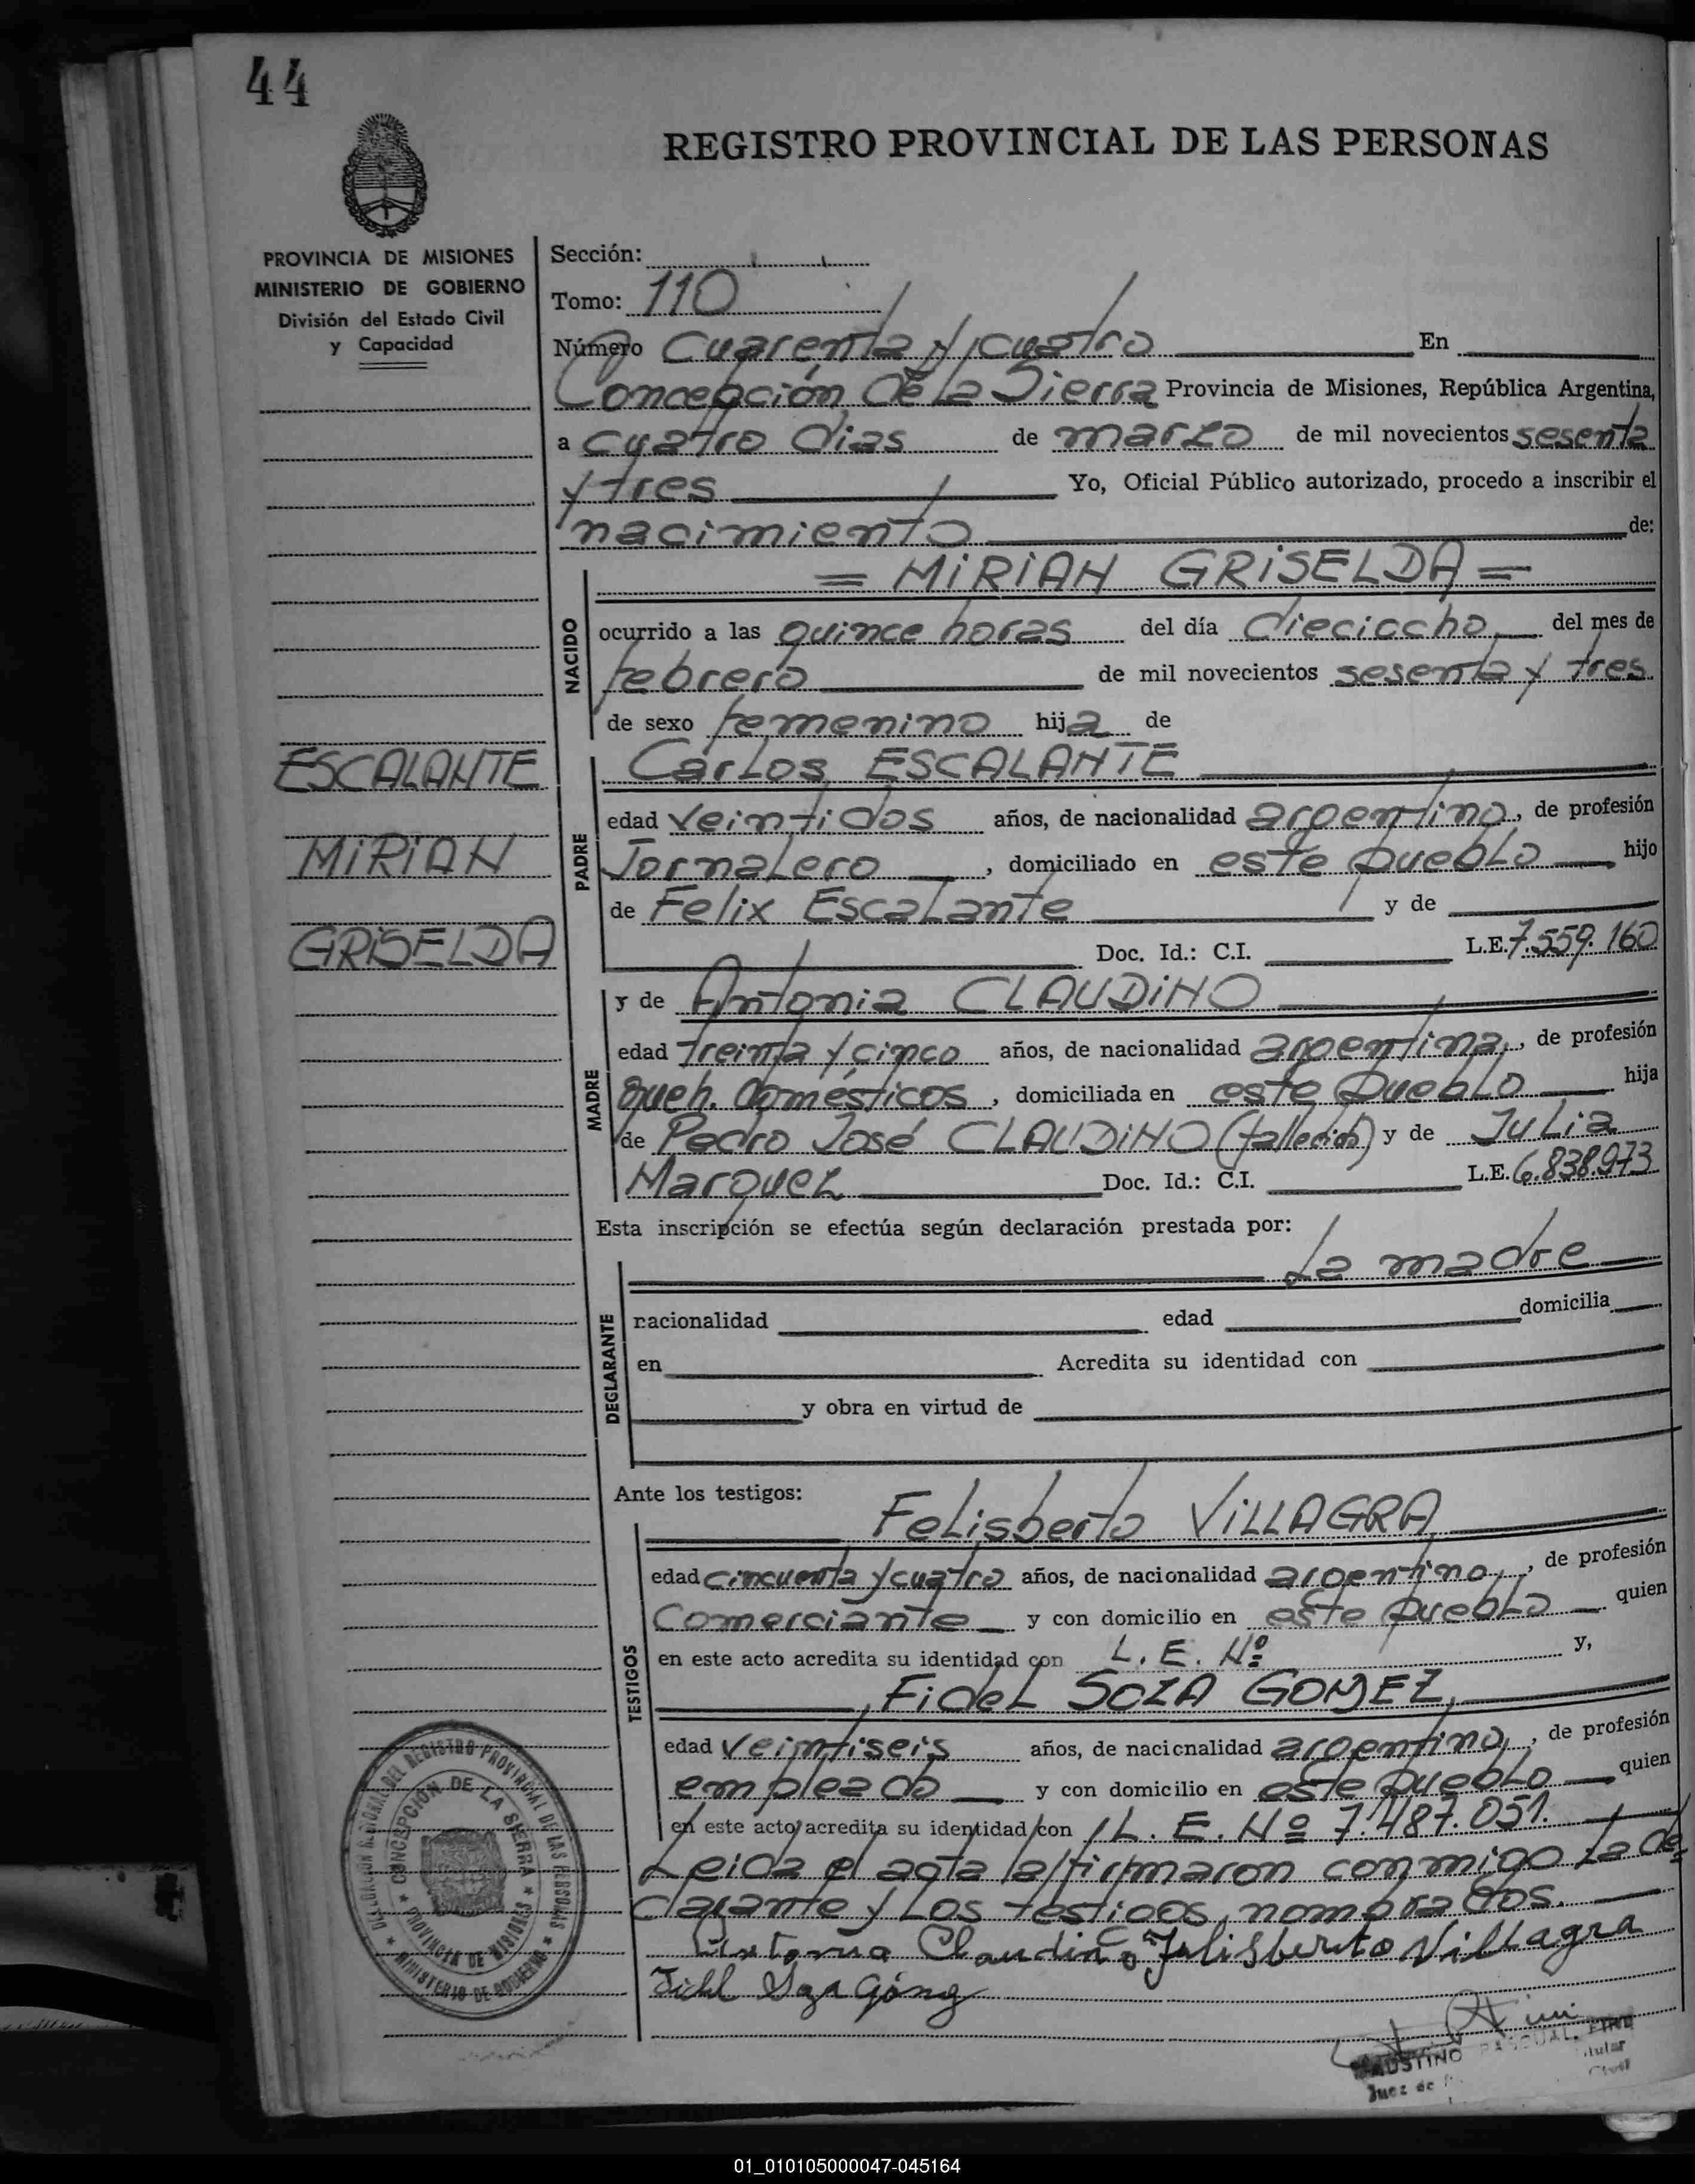 44
REGISTRO PROVINCIAL DE LAS PERSONAS
PROVINCIA DE MISIONES
MINISTERIO DE GOBIERNO
División del Estado Civil
y Capacidad
Sección:
Tomo: 110
Número Cuarenta y cuatro En
Concepción de la Sierra Provincia de Misiones, República Argentina,
a cuatro dias de marzo de mil novecientos sesenta
y tres Yo, Oficial Público autorizado, procedo a inscribir el
nacimiento de:
= MIRIAN GRISELDA =
NACIDO
ocurrido a las quince horas del día dieciocho del mes de
febrero de mil novecientos sesenta y tres
de sexo femenino hija de
ESCALANTE
MIRIAN
GRISELDA
PADRE
Carlos ESCALANTE
edad veintidos años, de nacionalidad argentino, de profesión
Jornalero, domiciliado en este pueblo hijo
de Felix Escalante y de
Doc. Id.: C.I. L.E. 7.559.160
MADRE
y de Antonia CLAUDINO
edad treinta y cinco años, de nacionalidad argentina, de profesión
queh. domésticos, domiciliada en este pueblo hija
de Pedro José CLAUDINO (fallecido) y de Julia
Marquez Doc. Id.: C.I. L.E. 6.838.973
Esta inscripción se efectúa según declaración prestada por:
La madre
DECLARANTE
nacionalidad edad domicilia
en Acredita su identidad con
y obra en virtud de
Ante los testigos:
TESTIGOS
Felisberto VILLAGRA
edad cincuenta y cuatro años, de nacionalidad argentino, de profesión
Comerciante y con domicilio en este pueblo quien
en este acto acredita su identidad con L. E. Nº y,
Fidel SOZA GOMEZ,
edad veintiseis años, de nacionalidad argentino, de profesión
empleado y con domicilio en este pueblo quien
en este acto acredita su identidad con L. E. Nº 7.487.051.
Leida el acta la firmaron conmigo la de=
clarante y los testigos nombrados.
Antonia Claudino Felisberto Villagra
Fidel Soza Gómez
DELEGACION REGIONAL DEL REGISTRO PROVINCIAL DE LAS PERSONAS
CONCEPCION DE LA SIERRA
PROVINCIA DE MISIONES
MINISTERIO DE GOBIERNO
FAUSTINO PASCUAL
Juez de
01_010105000047-045164